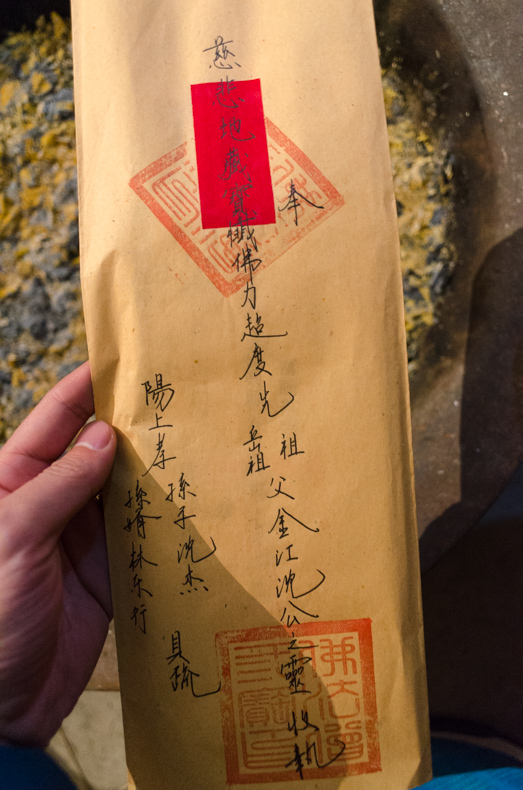 奉
慈悲地藏寶懺佛力超度先
祖
岳祖
父金江沈公之靈收執
陽上孝
孫子沈杰
孫婿林行
具疏
佛法僧
三寶印